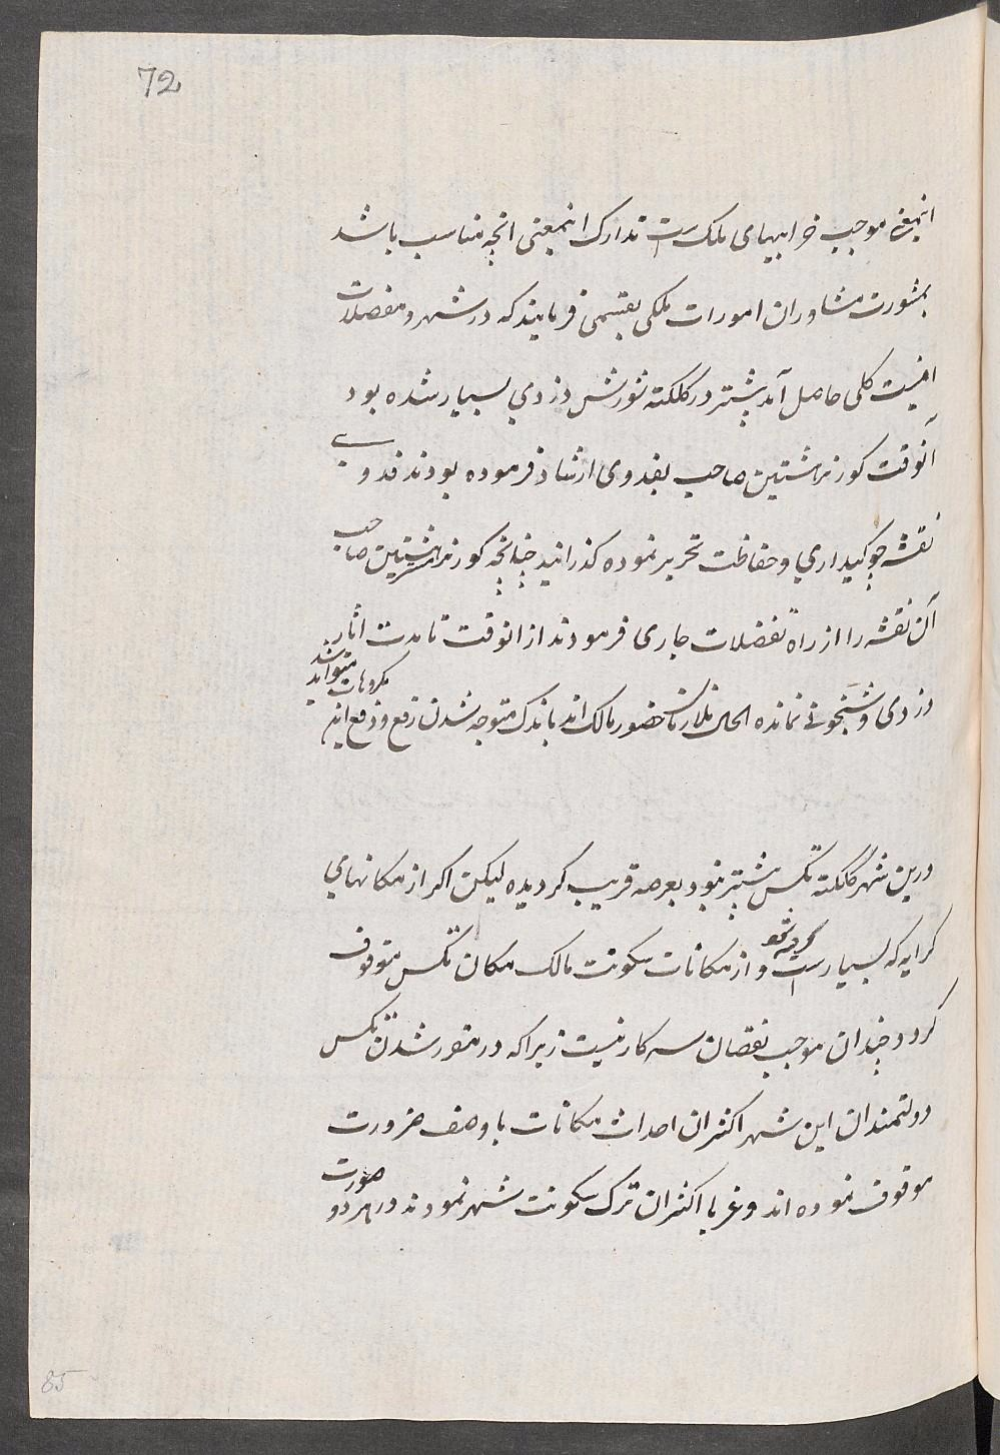 72
اینمعنی موجب خرابیهای ملک است تدارک اینمعنی انچه مناسب باشد
بمشورت مشاوران امورات ملکی بقسمی فرمایند که در شهر و مفصلات
امنیت کلی حاصل آید پیشتر در کلکته شورش دزدی بسیار شده بود
آنوقت کورنر هشتین صاحب بفدوی ارشاد فرموده بودند فدوی
نقشه چوکیداری و حفاظت تحریر نموده کذرانید چنانچه کورنر هشتین صاحب
آن نقشه را از راه تفضلات جاری فرمودند از انوقت تا مدت اثار
دزدی و شبخونی نمانده الحال ملازمان حضور مالک اند باندک متوجه شدن رفع و دفع این
مکروهات میتواند شد
درین شهر کلکته تکس پیشتر نبود بعرصه قریب کردیده لیکن اکر از مکانهای
کرایه که بسیار است کرفته شود و از مکانات سکونت مالک مکان تکس موقوف
کردد چندان موجب نقصان سرکار نیست زیراکه در مقرر شدن تکس
دولتمندان این شهر اکثران احداث مکانات با وصف ضرورت
موقوف نموده اند و غربا اکثران ترک سکونت شهر نمودند در هر دو صورت
85